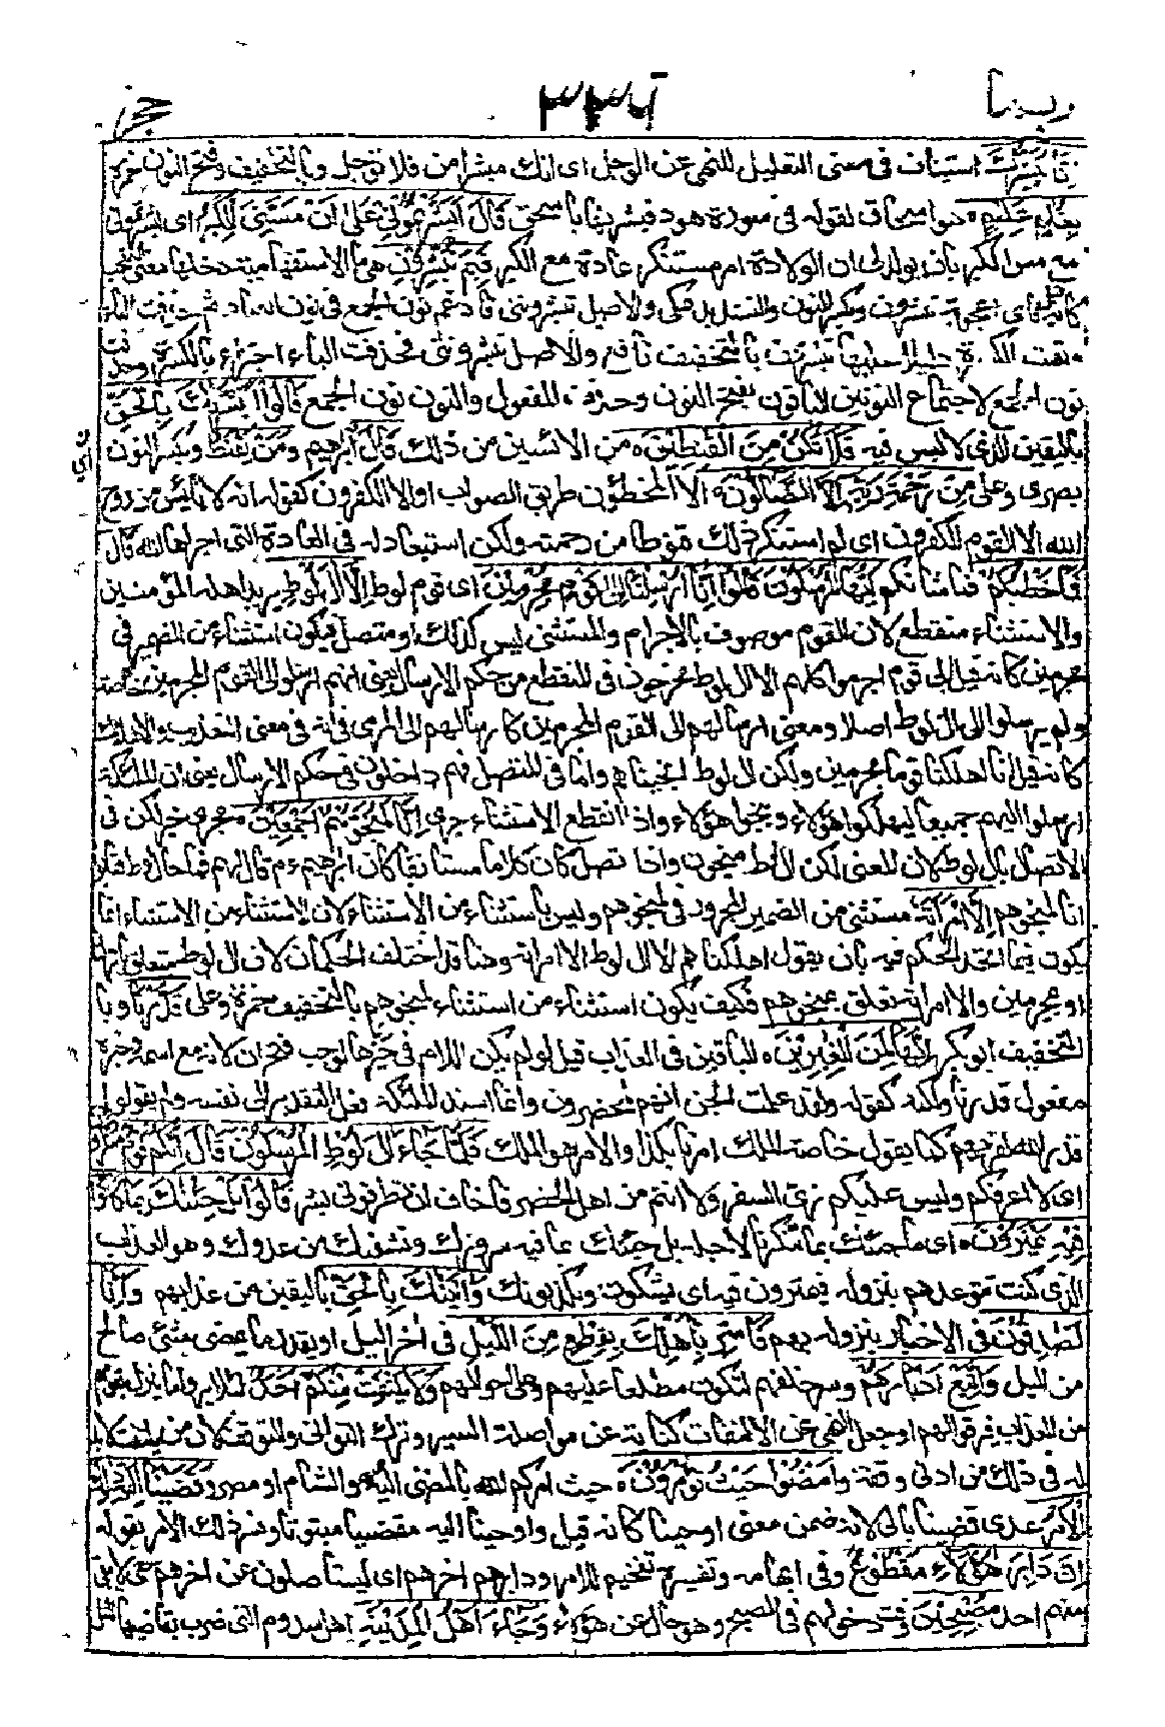 ربما ٣٣٦ حجر
إِنَّا نُبَشِّرُكَ استيناف فى معنى التعليل للنهى عن الوجل اى انك مبشر امن فلا توجل وبالتخفيف وفتح النون حمزة
بِغُلٰمٍ عَلِيْمٍ هو اسحاق لقوله فى سورة هود فبشرنها باسحق قَالَ اَبَشَّرْتُمُوْنِىْ عَلٰى اَنْ مَّسَّنِىَ الْكِبَرُ اى ابشرتمونى
مع مس الكبر بان يولد لى اى ان الولادة امر مستنكر عادة مع الكبر فَبِمَ تُبَشِّرُوْنَ هى ما الاستفهامية دخلها معنى التعجب
كانه قيل فباى اعجوبة تبشرون وبكسر النون والتشديد مكى والاصل تبشروننى فادغم نون الجمع فى نون العماد ثم حذفت الياء
وبقيت الكسرة دليلا عليها تبشرون بالتخفيف نافع والاصل تبشروننى فحذفت الياء اجتزاء بالكسرة وحذف
نون الجمع لاجتماع النونين الباقون بفتح النون وحذف المفعول والنون نون الجمع قَالُوْا بَشَّرْنٰكَ بِالْحَقِّ
باليقين الذى لا لبس فيه فَلَا تَكُنْ مِّنَ الْقٰنِطِيْنَ من الائسين من ذلك قَالَ ابرهيم وَمَنْ يَّقْنَطُ وبكسر النون
بصرى وعلى مِنْ رَّحْمَةِ رَبِّهٖ اِلَّا الضَّآلُّوْنَ الا المخطئون طريق الصواب او الا الكفرون كقوله انه لا يايئس من روح
الله الا القوم الكفرون اى لم استنكر ذلك قنوطا من رحمته ولكن استبعادا له فى العادة التى اجراها الله قَالَ
فَمَا خَطْبُكُمْ فما شانكم اَيُّهَا الْمُرْسَلُوْنَ قَالُوْا اِنَّا اُرْسِلْنَا اِلٰى قَوْمٍ مُّجْرِمِيْنَ اى قوم لوط اِلَّا اٰلَ لُوْطٍ يريد اهله المؤمنين
والاستثناء منقطع لان القوم موصوف بالاجرام والمستثنى ليس كذلك او متصل فيكون استثناء من الضمير فى
مجرمين كانه قيل الى قوم اجرموا كلهم الا ال لوط مخرجون فى المنقطع من حكم الارسال يعنى انهم ارسلوا الى القوم المجرمين خاصة
ولم يرسلوا الى ال لوط اصلا ومعنى ارسالهم الى القوم المجرمين كارسال السهم الى المرمى فى انه فى معنى التعذيب والاهلاك
كانه قيل انا اهلكنا قوما مجرمين ولكن ال لوط انجيناهم واما فى المتصل فهم داخلون فى حكم الارسال يعنى ان الملئكة
ارسلوا اليهم جميعا ليهلكوا هؤلاء وينجوا هؤلاء واذا انقطع الاستثناء جرى اِنَّا لَمُنَجُّوْهُمْ اَجْمَعِيْنَ مجرى خبر لكن فى
الاتصال بال لوط لان المعنى لكن ال لوط منجون واذا اتصل كان كلاما مستانفا كان ابرهيم ع م قال لهم فما حال ال لوط فقالوا
انا لمنجوهم اِلَّا امْرَاَتَهٗ مستثنى من الضمير المجرور فى لمنجوهم وليس باستثناء من الاستثناء لان الاستثناء من الاستثناء انما
يكون فيما اتحد الحكم فيه بان يقول اهلكناهم الا ال لوط الا امراته وهنا قد اختلف الحكمان لان ال لوط متعلق بارسلنا
او بمجرمين والا امراته تعلق بمنجوهم فكيف يكون استثناء من استثناء لمنجوهم بالتخفيف حمزة وعلى قَدَّرْنَا وبا
لتخفيف ابو بكر اِنَّهَا لَمِنَ الْغٰبِرِيْنَ الباقين فى العذاب قيل لو لم يكن اللام فى خبرها لوجب فتح ان لانه مع اسمه وخبره
مفعول قدرنا ولكنه كقوله ولقد علمت الجن انهم لمحضرون وانما اسند الملئكة فعل التقدير الى نفسه ولم يقولوا
قدر الله لقربهم كما يقول خاصة الملك امرنا بكذا والامر هو الملك فَلَمَّا جَآءَ اٰلَ لُوْطِ الْمُرْسَلُوْنَ قَالَ اِنَّكُمْ قَوْمٌ مُّنْكَرُوْنَ
اى لا اعرفكم وليس عليكم زى السفر ولا انتم من اهل الحضر فاخاف ان تطرقونى بشر قَالُوْا بَلْ جِئْنٰكَ بِمَا كَانُوْا
فِيْهِ يَمْتَرُوْنَ اى ما جئناك بما تنكرنا لاجله بل جئناك بما فيه سرورك وتشفيك من عدوك وهو العذاب
الذى كنت تتوعدهم بنزوله فيمترون فيه اى يشكون ويكذبونك وَاَتَيْنٰكَ بِالْحَقِّ باليقين من عذابهم وَاِنَّا
لَصٰدِقُوْنَ فى الاخبار بنزوله بهم فَاَسْرِ بِاَهْلِكَ بِقِطْعٍ مِّنَ الَّيْلِ فى اخر الليل او بعد ما يمضى شئ صالح
من الليل وَاتَّبِعْ اَدْبَارَهُمْ وسر خلفهم لتكون مطلعا عليهم وعلى احوالهم وَلَا يَلْتَفِتْ مِنْكُمْ اَحَدٌ لئلا يروا ما ينزل بقومهم
من العذاب فيرقوا لهم او جعل النهى عن الالتفات كناية عن مواصلة السير وترك التوانى والتوقف لان من يلتفت لا بد
له فى ذلك من ادنى وقفة وَامْضُوْا حَيْثُ تُؤْمَرُوْنَ حيث امركم الله بالمضى اليه وهو الشام او مصر وَقَضَيْنَآ اِلَيْهِ ذٰلِكَ
الْاَمْرَ عدى قضينا بالى لانه ضمن معنى اوحينا كانه قيل واوحينا اليه مقضيا مبتوتا وفسر ذلك الامر بقوله
اَنَّ دَابِرَ هٰٓؤُلَآءِ مَقْطُوْعٌ وفى ابهامه وتفسيره تفخيم للامر ودابرهم اخرهم اى يستاصلون عن اخرهم حتى لا يبقى
منهم احد مُّصْبِحِيْنَ وقت دخولهم فى الصبح وهو حال من هؤلاء وَجَآءَ اَهْلُ الْمَدِيْنَةِ اهل سدوم التى ضرب بقاضيها المثل